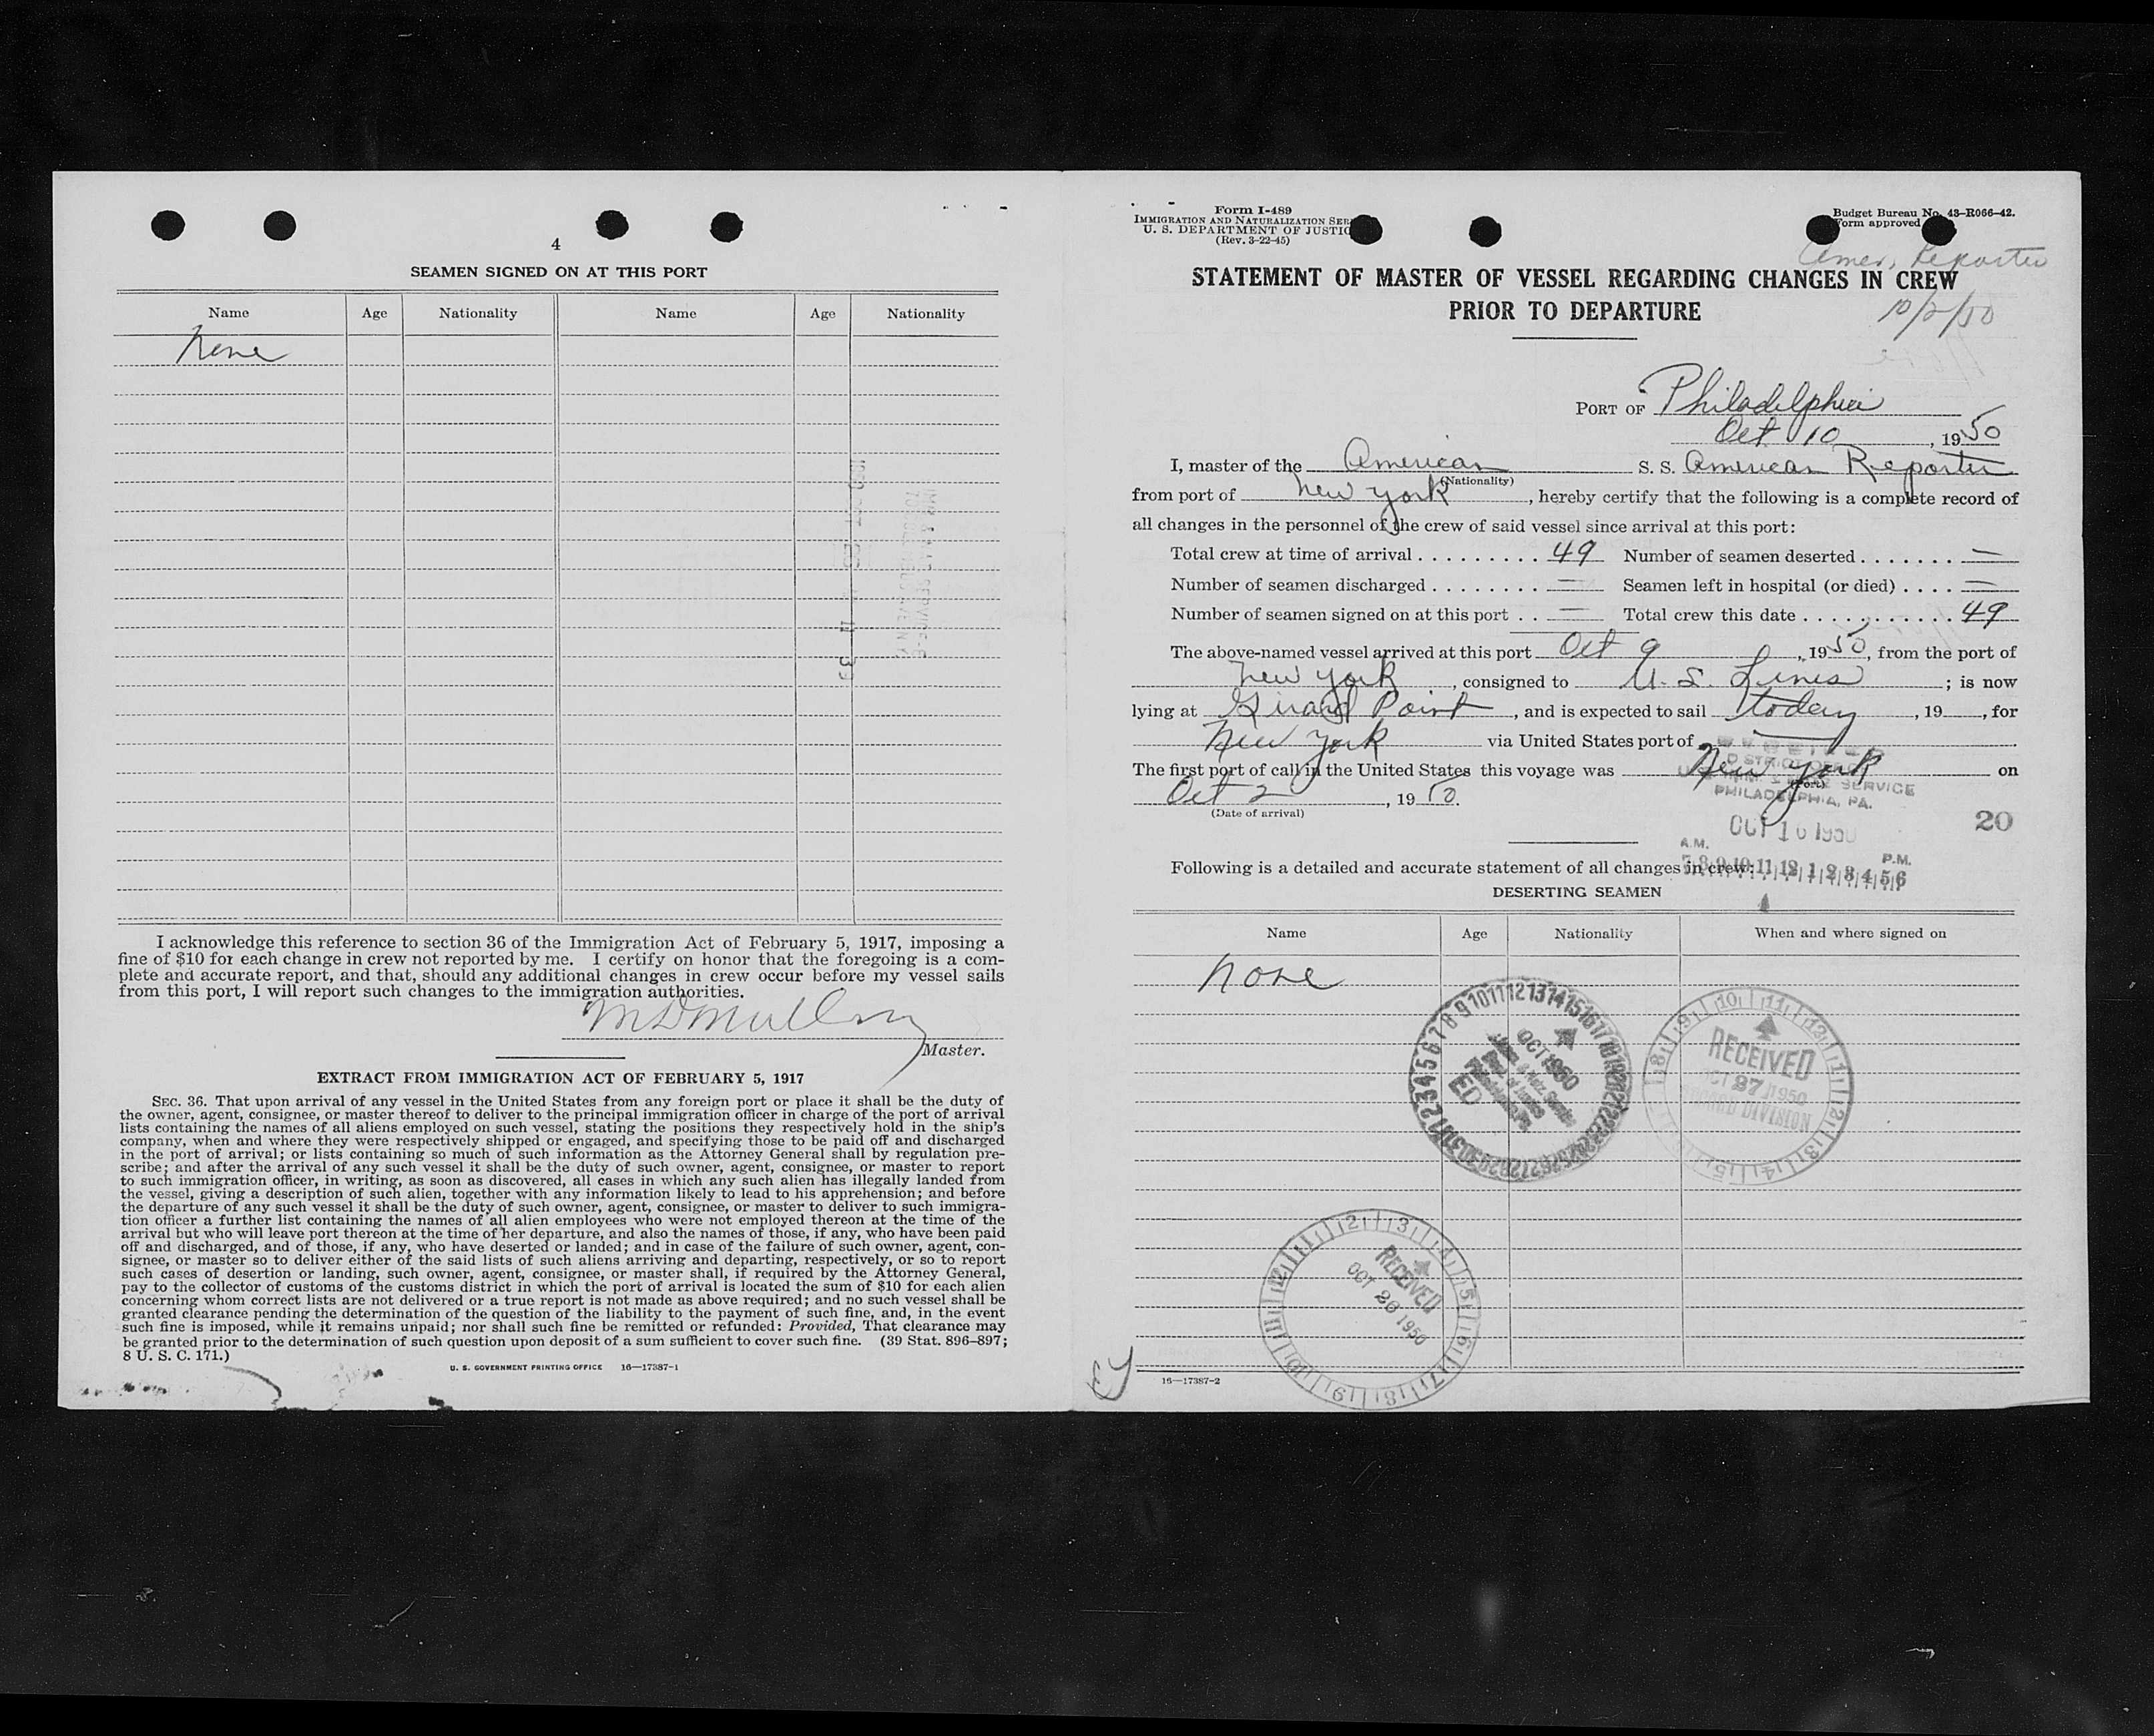 4
SEAMEN SIGNED ON AT THIS PORT
Name Age Nationality Name Age Nationality
None
I acknowledge this reference to section 36 of the Immigration Act of February 5, 1917, imposing a
fine of $10 for each change in crew not reported by me. I certify on honor that the foregoing is a com-
plete and accurate report, and that, should any additional changes in crew occur before my vessel sails
from this port, I will report such changes to the immigration authorities.
Master.
EXTRACT FROM IMMIGRATION ACT OF FEBRUARY 5, 1917
SEC. 36. That upon arrival of any vessel in the United States from any foreign port or place it shall be the duty of
the owner, agent, consignee, or master thereof to deliver to the principal immigration officer in charge of the port of arrival
lists containing the names of all aliens employed on such vessel, stating the positions they respectively hold in the ship's
company, when and where they were respectively shipped or engaged, and specifying those to be paid off and discharged
in the port of arrival; or lists containing so much of such information as the Attorney General shall by regulation pre-
scribe; and after the arrival of any such vessel it shall be the duty of such owner, agent, consignee, or master to report
to such immigration officer, in writing, as soon as discovered, all cases in which any such alien has illegally landed from
the vessel, giving a description of such alien, together with any information likely to lead to his apprehension; and before
the departure of any such vessel it shall be the duty of such owner, agent, consignee, or master to deliver to such immigra-
tion officer a further list containing the names of all alien employees who were not employed thereon at the time of the
arrival but who will leave port thereon at the time of her departure, and also the names of those, if any, who have been paid
off and discharged, and of those, if any, who have deserted or landed; and in case of the failure of such owner, agent, con-
signee, or master so to deliver either of the said lists of such aliens arriving and departing, respectively, or so to report
such cases of desertion or landing, such owner, agent, consignee, or master shall, if required by the Attorney General,
pay to the collector of customs of the customs district in which the port of arrival is located the sum of $10 for each alien
concerning whom correct lists are not delivered or a true report is not made as above required; and no such vessel shall be
granted clearance pending the determination of the question of the liability to the payment of such fine, and, in the event
such fine is imposed, while it remains unpaid; nor shall such fine be remitted or refunded: Provided, That clearance may
be granted prior to the determination of such question upon deposit of a sum sufficient to cover such fine. (39 Stat. 896-897;
8 U. S. C. 171.)
U. S. GOVERNMENT PRINTING OFFICE 16—17387-1
Form I-489
IMMIGRATION AND NATURALIZATION SER
U. S. DEPARTMENT OF JUSTIC
(Rev. 3-22-45)
Budget Bureau No. 43-R066-42.
Form approved
Amer. Reporter
STATEMENT OF MASTER OF VESSEL REGARDING CHANGES IN CREW
PRIOR TO DEPARTURE
10/2/50
PORT OF Philadelphia
Oct 10, 1950
I, master of the American S. S. American Reporter
(Nationality)
from port of New York, hereby certify that the following is a complete record of
all changes in the personnel of the crew of said vessel since arrival at this port:
Total crew at time of arrival ......... 49 Number of seamen deserted ....... —
Number of seamen discharged ........ — Seamen left in hospital (or died) .... —
Number of seamen signed on at this port .. — Total crew this date ........... 49
The above-named vessel arrived at this port Oct 9, 1950, from the port of
New York, consigned to U. S. Lines; is now
lying at Girard Point, and is expected to sail today, 19, for
New York via United States port of
The first port of call in the United States this voyage was New York on
(Port)
Oct 2, 1950.
(Date of arrival)
SERVICE
PHILADELPHIA, PA.
OCT 10 1950
20
A.M. P.M.
7 8 9 10 11 12 1 2 3 4 5 6
Following is a detailed and accurate statement of all changes in crew:
DESERTING SEAMEN
Name Age Nationality When and where signed on
None
OCT 1950
RECEIVED
OCT 27 1950
DIVISION
RECEIVED
OCT 20 1950
16—17387-2